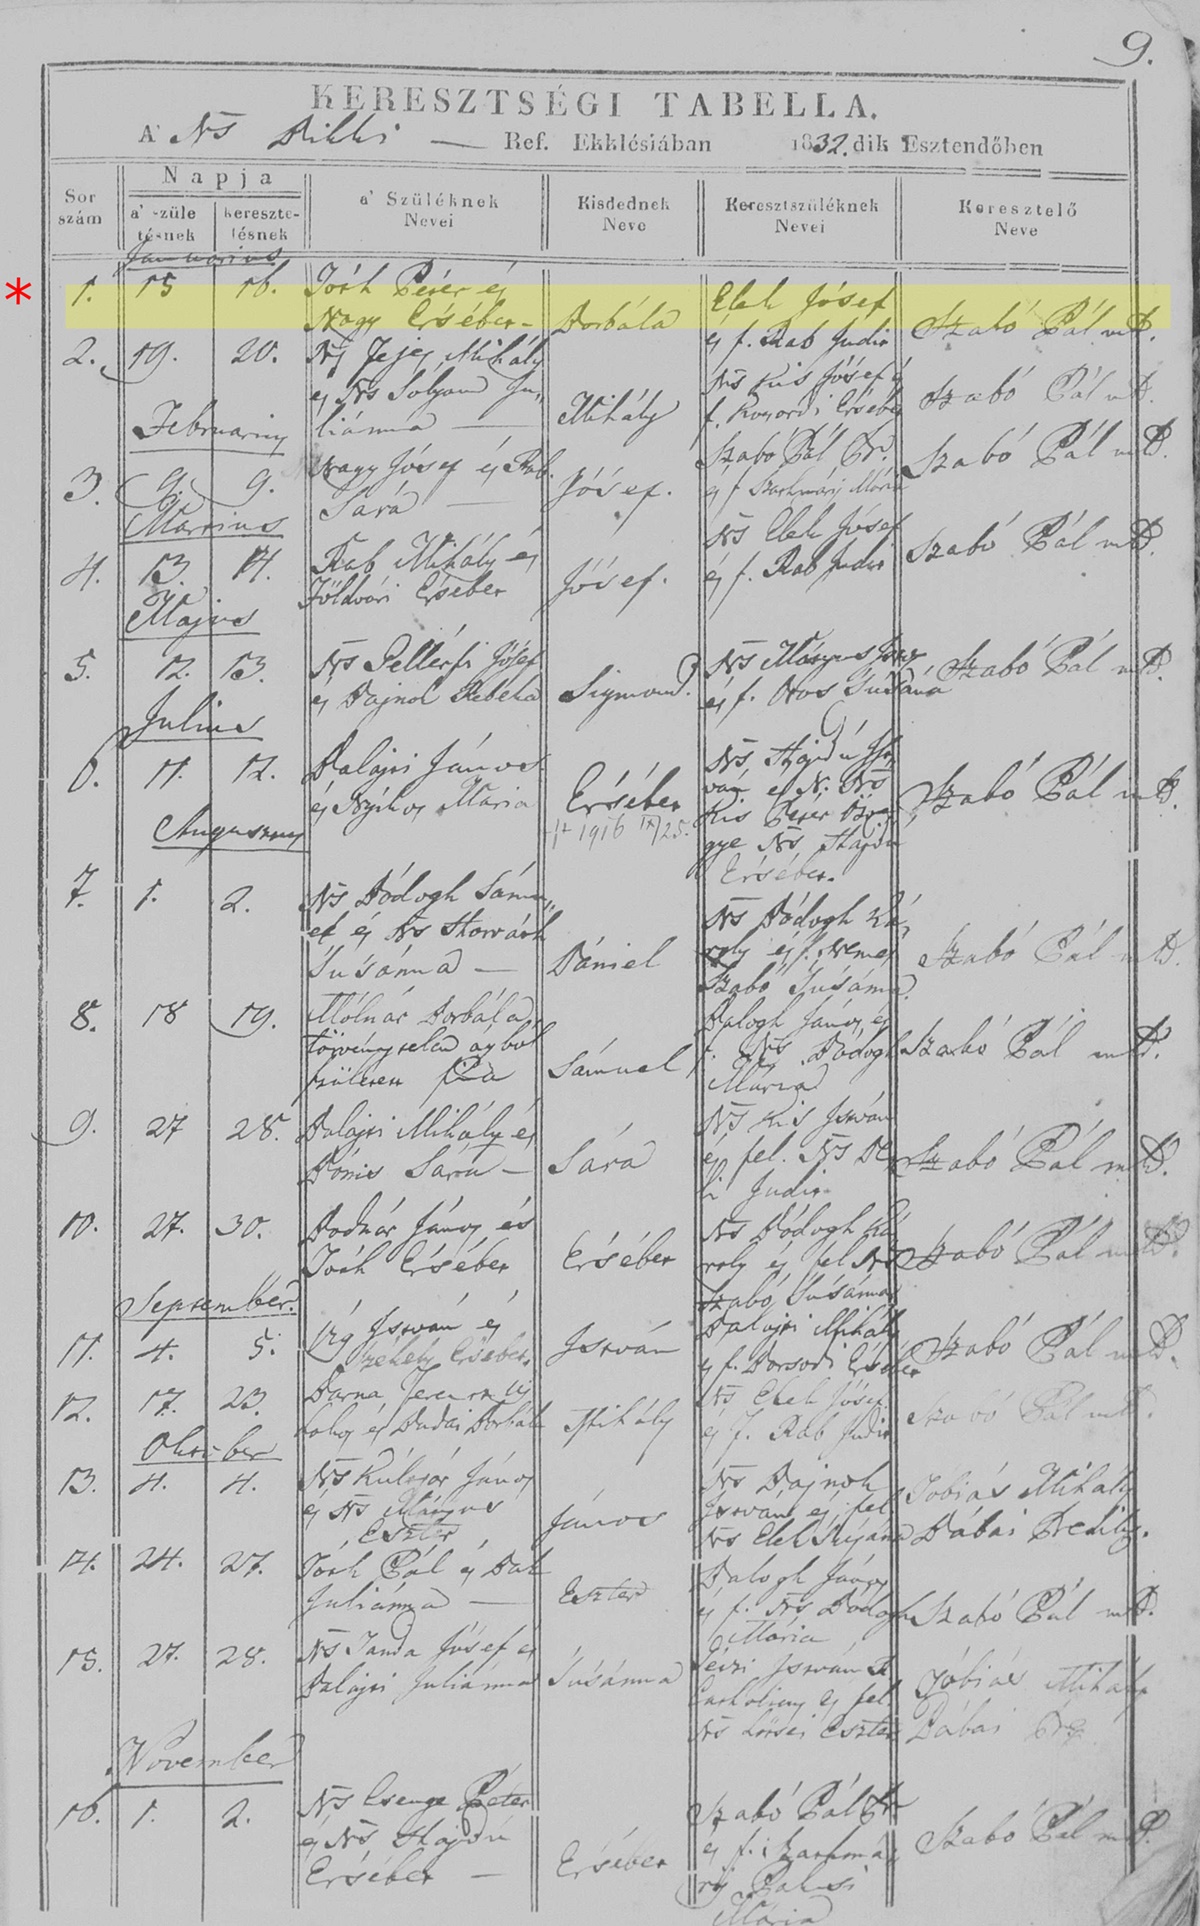 9.
KERESZTSÉGI TABELLA.
A' Ns Ref. Ekklésiában 1832.dik Esztendőben
Sor szám
Napja
a' szüle tésnek
kereszte- tésnek
a' Szüléknek Nevei
Kisdednek Neve
Keresztszüléknek Nevei
Keresztelő Neve
Januarius
* 1. 15 16. Tóth Péter és Elek Jósef
Nagy Ersébet - Borbála Szabó Pál mP.
és f. Rab Judit
2. 19. 20. Ns Mihály Ns Kis Jósef é
és Ns Ju, Mihály f. Ersébet Szabó Pál mP.
liánna —
Februarius
3. 9. 9. Nagy Jósef és Rab Szabó Pál Pr.
Sára — Jósef. és f Mária Szabó Pál mP.
Martius
4. 13. 14. Rab Mihály és Ns Elek Jósef
Földvári Ersébet Jósef. és f. Rab Judit Szabó Pál mP.
Május
5. 12. 13. Ns Jósef Ns
és Bajnok Rebeka Sigmond. és f. Susána Szabó Pál mP.
Julius
6. 11. 12. Balajti János Ns Hajdú Ist
és Mária Ersébet ván és N. Ns Szabó Pál mP.
+ 1916 IX/25. Kis Péter
gye Ns Hajdu
Ersébet.
Augustus
7. 1. 2. Ns Bódogh Sámu, Ns Bódogh Ká,
el és Ns Horváth roly és f. Nemes
Susánna — Dániel Szabó Susánna Szabó Pál mP.
8. 18 19. Mólnár Borbála, Balogh János és
törvénytelen ágybol f. Ns Bódogh Szabó Pál mP.
született fia Sámuel Mária
9. 27 28. Balajti Mihály és Ns Kis István
Dónis Sára — Sára és fel. Ns Be Szabó Pál mP.
li Judit
10. 27. 30. Bodnár János és Ns Bódogh Ká
Tóth Ersébet Ersébet roly és fel Ns Szabó Pál mP.
Szabó Susánna
September.
11. 4. 5. Víg István és Balajti Mihály
Székely Ersébet. István és f. Borsodi Ersébet Szabó Pál mP.
12. 17. 23. Barna Ns Elek Jósef
és Budai Borbála Mihály és f. Rab Judit Szabó Pál mP.
Oktober
13. 4. 4. Ns Kulcsár János Ns Bajnok Tóbiás Mihály
és Ns István és fel
Eszter János Ns Elek Bábai Prédik.
14. 24. 27. Tóth Pál és Balogh János
Juliánna — Eszter és f. Ns Bódogh Szabó Pál mP.
Mária
15. 27. 28. Ns Tanda Jósef és István R.
Balajti Juliánna Susánna Catholicus és fel. Tóbiás Mihály
Ns Eszter Bábai
November
16. 1. 2. Ns Csenge Péter Szabó Pál Pr
és Ns Hajdu és f. Szathmá
Ersébet — Ersébet Szabó Pál mP.
Mária